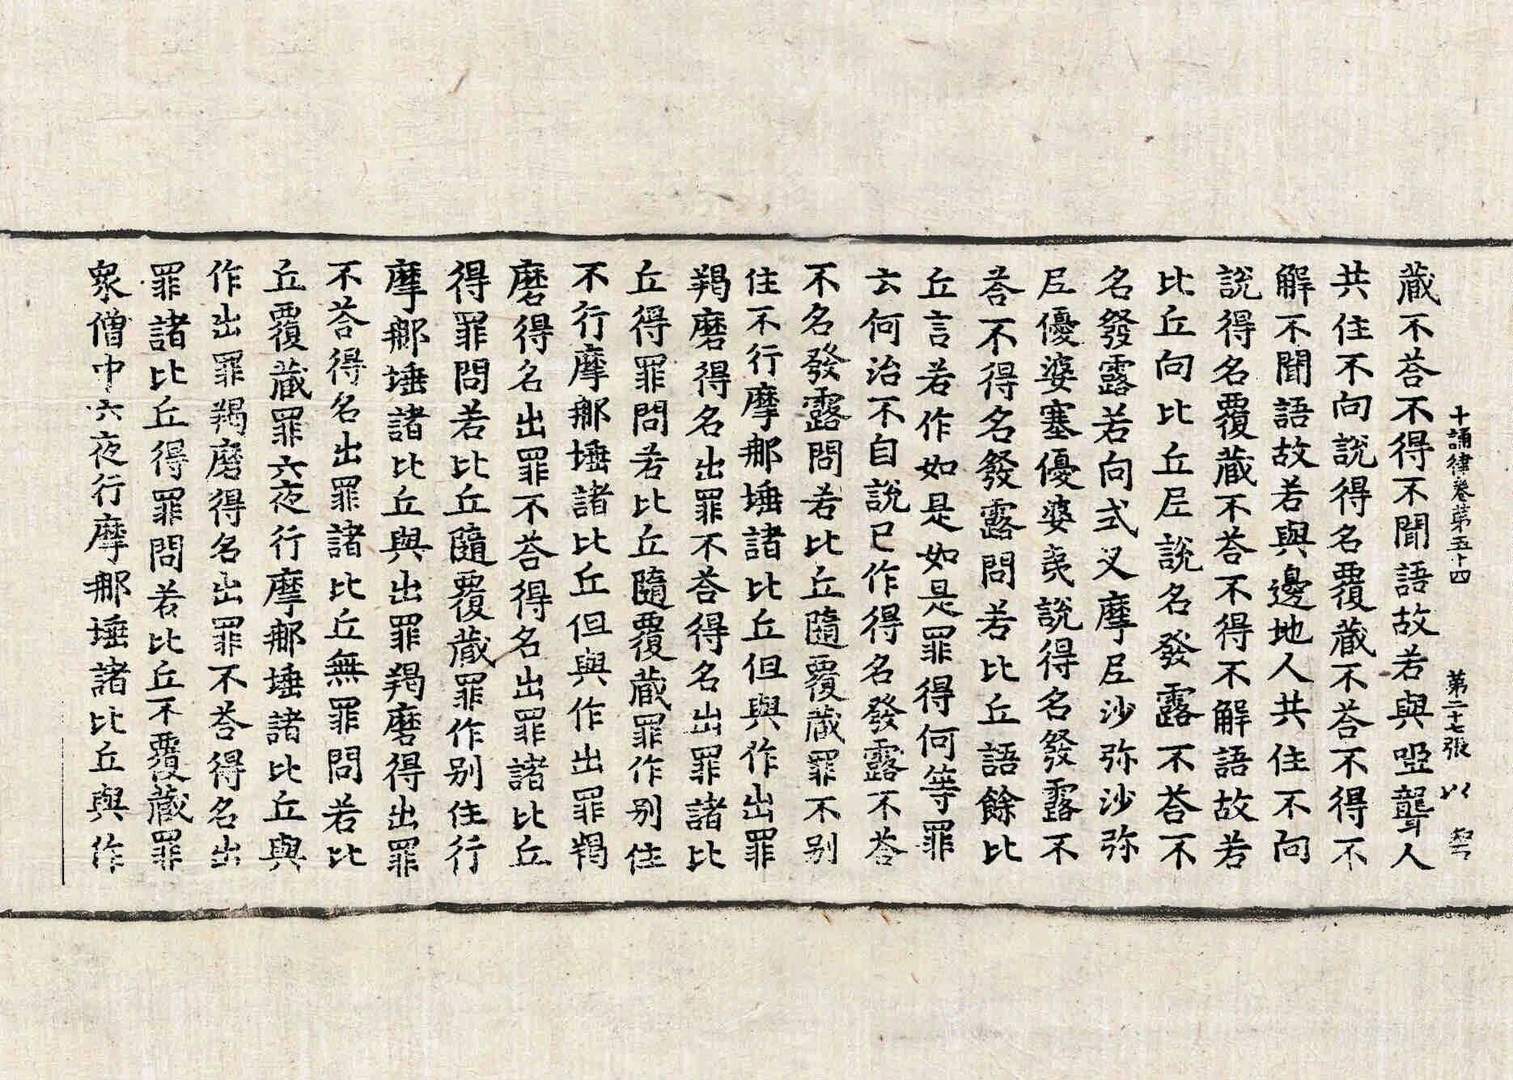 十誦律卷第五十四　第二十七張　以
藏不荅不得不聞語故若與啞聾人
共住不向說得名覆藏不荅不得不
解不聞語故若與邊地人共住不向
說得名覆藏不荅不得不解語故若
比丘向比丘尼說名發露不荅不
名發露若向式叉摩尼沙弥沙弥
尼優婆塞優婆夷說得名發露不
荅不得名發露問若比丘語餘比
丘言若作如是如是罪得何等罪
云何治不自說已作得名發露不荅
不名發露問若比丘隨覆藏罪不別
住不行摩那埵諸比丘但與作出罪
羯磨得名出罪不荅得名出罪諸比
丘得罪問若比丘隨覆藏罪作别住
不行摩那埵諸比丘但與作出罪羯
磨得名出罪不荅得名出罪諸比丘
得罪問若比丘隨覆藏罪作别住行
摩那埵諸比丘與出罪羯磨得出罪
不荅得名出罪諸比丘無罪問若比
丘覆藏罪六夜行摩那埵諸比丘與
作出罪羯磨得名出罪不荅得名出
罪諸比丘得罪問若比丘不覆藏罪
衆僧中六夜行摩那埵諸比丘與作